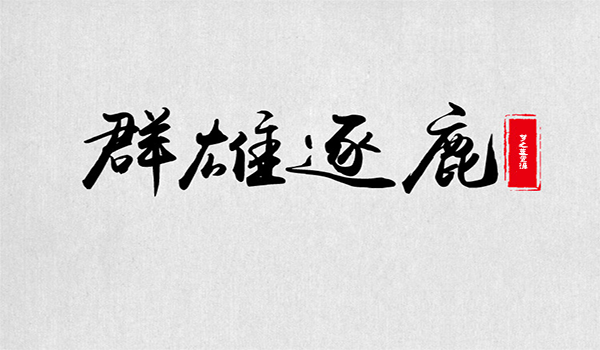 群雄逐鹿